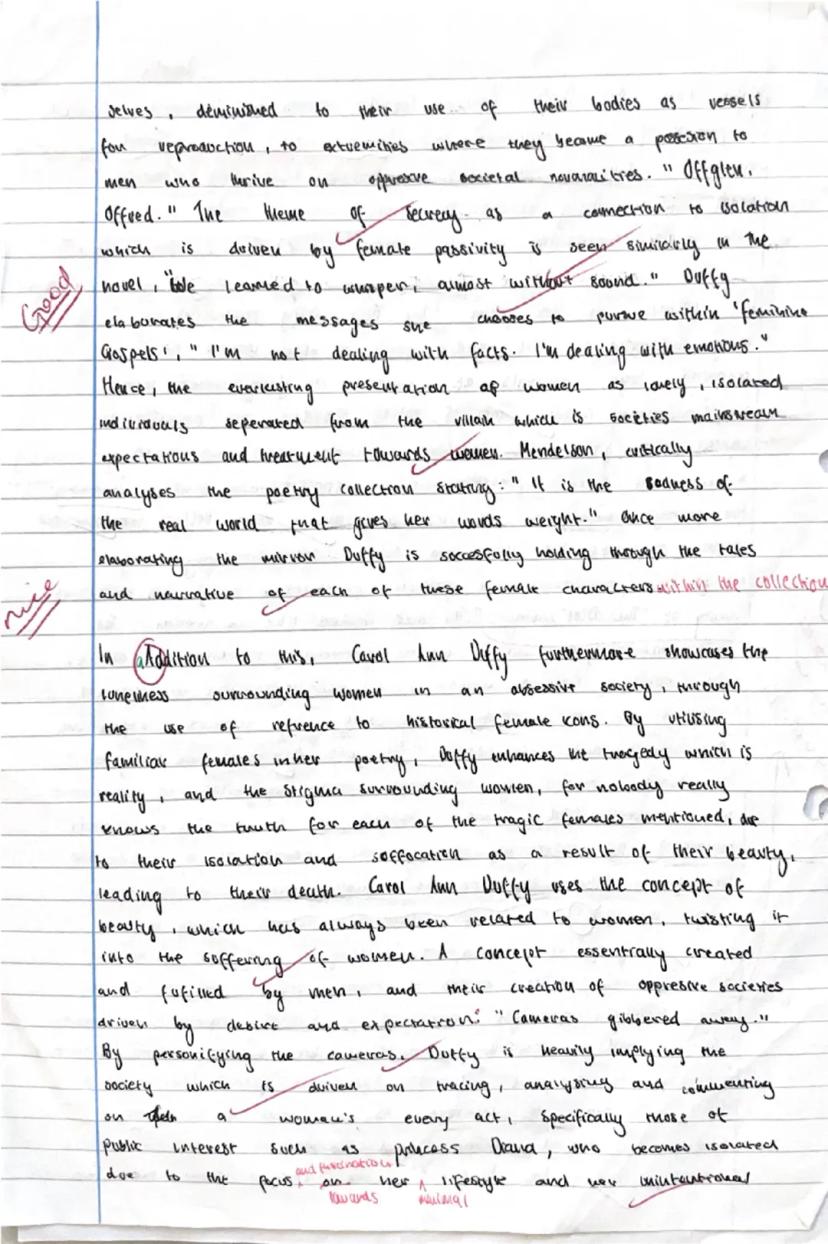 selves, deminished to their use of their bodies as vessels
for reproduction, to extremities where they became a possesion to
men who thrive on oppresive societal novaralities. "Offglen.
Offred." The theme of secrecy as a connection to isolation
which is driven by female passivity is seen similarly in the
Good
novel, "We learned to whisper, almost without sound." Duffy
elaborates the messages she chooses to pursue within 'feminine
Gospels', "I'm not dealing with facts. I'm dealing with emotions."
Hence, the everlasting presentation of women as lonely, isolated
individuals seperated from the villain which is societies mainstream
expectations and treatment towards women. Mendelson, critically
analyses the poetry collection stating: "It is the sadness of
the real world that gives her words weight." Once more
elaborating the mirror Duffy is succesfully holding through the tales
nice
and narrative of each of these female characters within the collection
In aAddition to this, Carol Ann Duffy furthermore showcases the
loneliness surrounding women in an obsessive society, through
the use of refrence to historical female icons. By utilising
familiar females in her poetry, Duffy enhances the tragedy which is
reality, and the stigma surrounding women, for nobody really
knows the truth for each of the tragic females mentioned, due
to their isolation and soffocation as a result of their beauty,
leading to their death. Carol Ann Duffy uses the concept of
beauty, which has always been related to women, twisting it
into the suffering of women. A concept essentially created
and fufilled by men, and their creation of oppresive societies
driven by desire and expectation: "Cameras gibbered away."
By personifying the cameras, Duffy is heavily implying the
society which is driven on tracing, analysing and commenting
on a woman's every act, specifically those of
public interest such as princess Diana, who becomes isolated
and fascination
due to the focus on her lifestyle and her unintentional
towards minimal